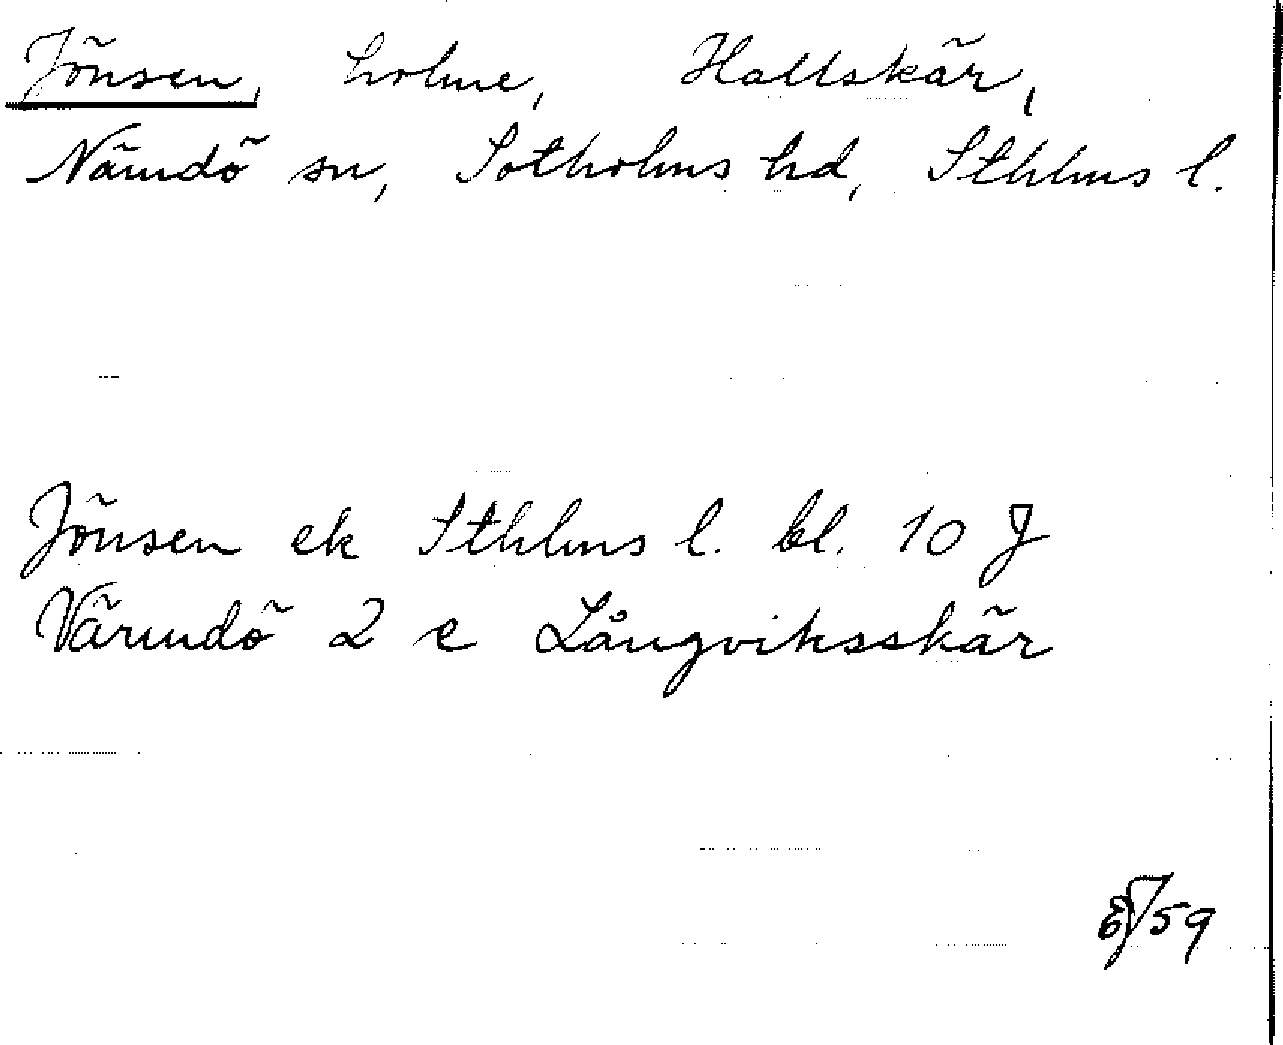 Jönsen, holme, Hallskär,
Nämdö sn, Sotholms hd, Sthlms l.
Jönsen ek Sthlms l. bl. 10 J
Värmdö 2 e Långviksskär
59